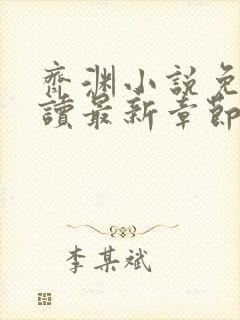 齊渊小說免
讀最新章節
李某斌